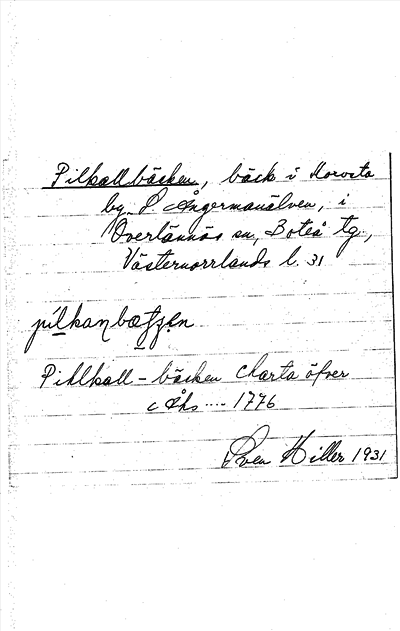 Pilkallbäcken, bäck i Horvsta
by P Ångermanälven, i
Överlännäs sn, Boteå tg,
Västernorrlands l. 31
Pihlkall-bäcken Charta öfver
Åhs .... 1776
Sven Hiller 1931